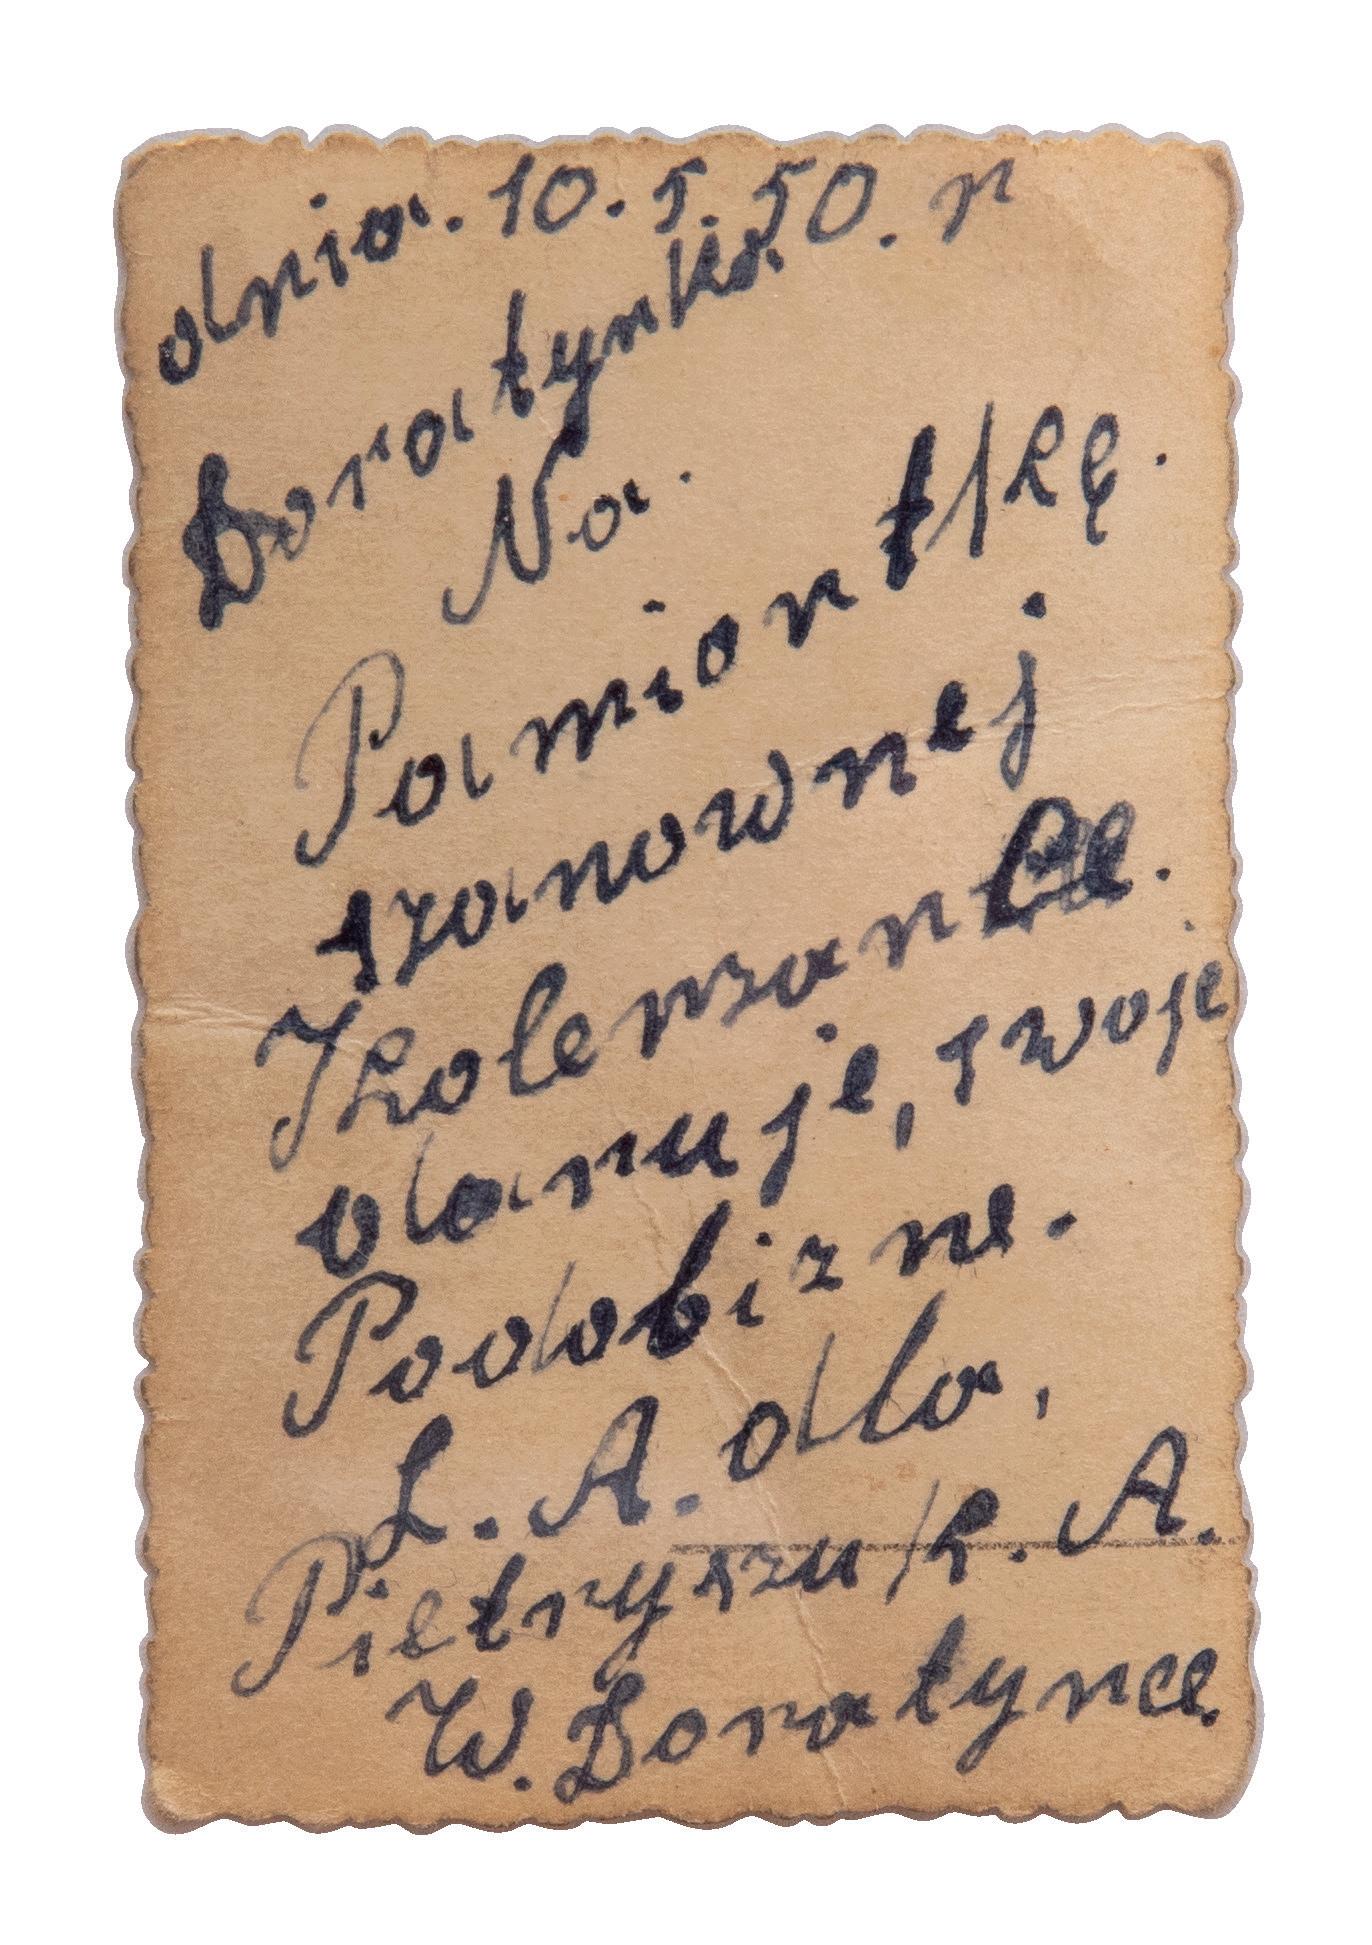 dnia. 10. 5. 50. r
Boratynka.
Na.
Pamiontkę.
szanownej
Kolerzance.
daruje, swoje
Podobizne.
L. A. dla,
Pietryszu k. A.
W. Boratynce.